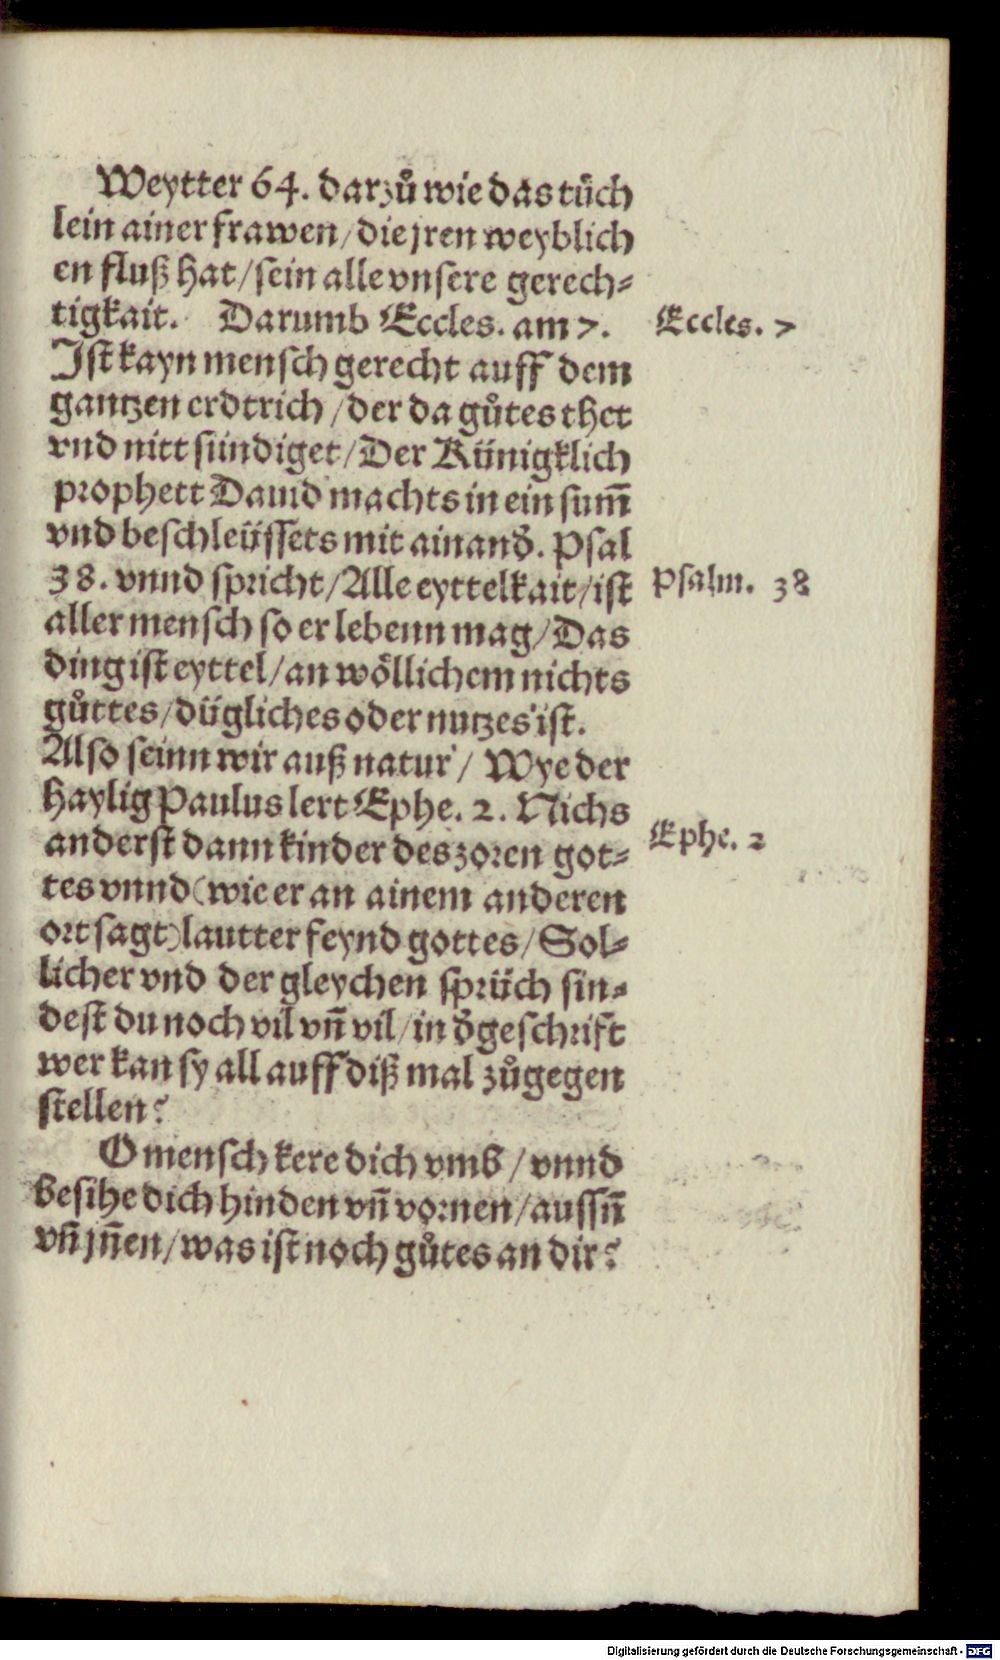 Weytter 64. darzů wie das tüch
lein ainer frawen / die jren weyblich
en fluß hat / sein alle vnsere gerech⸗
tigkait. Darumb Eccles. am 7.
Eccles. 7
Ist kayn mensch gerecht auff dem
gantzen erdtrich / der da gůtes thet
vnd nitt sündiget / Der Künigklich
prophett Dauid machts in ein sum̄
vnd beschleüssets mit ainand̕. Psal
38. vnnd spricht / Alle eyttelkait / ist
Psalm. 38
aller mensch so er lebenn mag / Das
ding ist eyttel / an wöllichem nichts
gůttes / dügliches oder nutzes ist.
Also seinn wir auß natur / Wye der
haylig Paulus lert Ephe. 2. Nichs
anderst dann kinder des zoren got⸗
Ephe. 2
tes vnnd (wie er an ainem anderen
ort sagt) lautter feynd gottes / Sol⸗
licher vnd der gleychen sprüch fin⸗
dest du noch vil vn̄ vil / in d̕ geschrift
wer kan sy all auff diß mal zůgegen
stellen?
O mensch kere dich vmb / vnnd
besihe dich hinden vn̄ vornen / aussn̄
vn̄ jn̄en / was ist noch gůtes an dir?
Digitalisierung gefördert durch die Deutsche Forschungsgemeinschaft - DFG